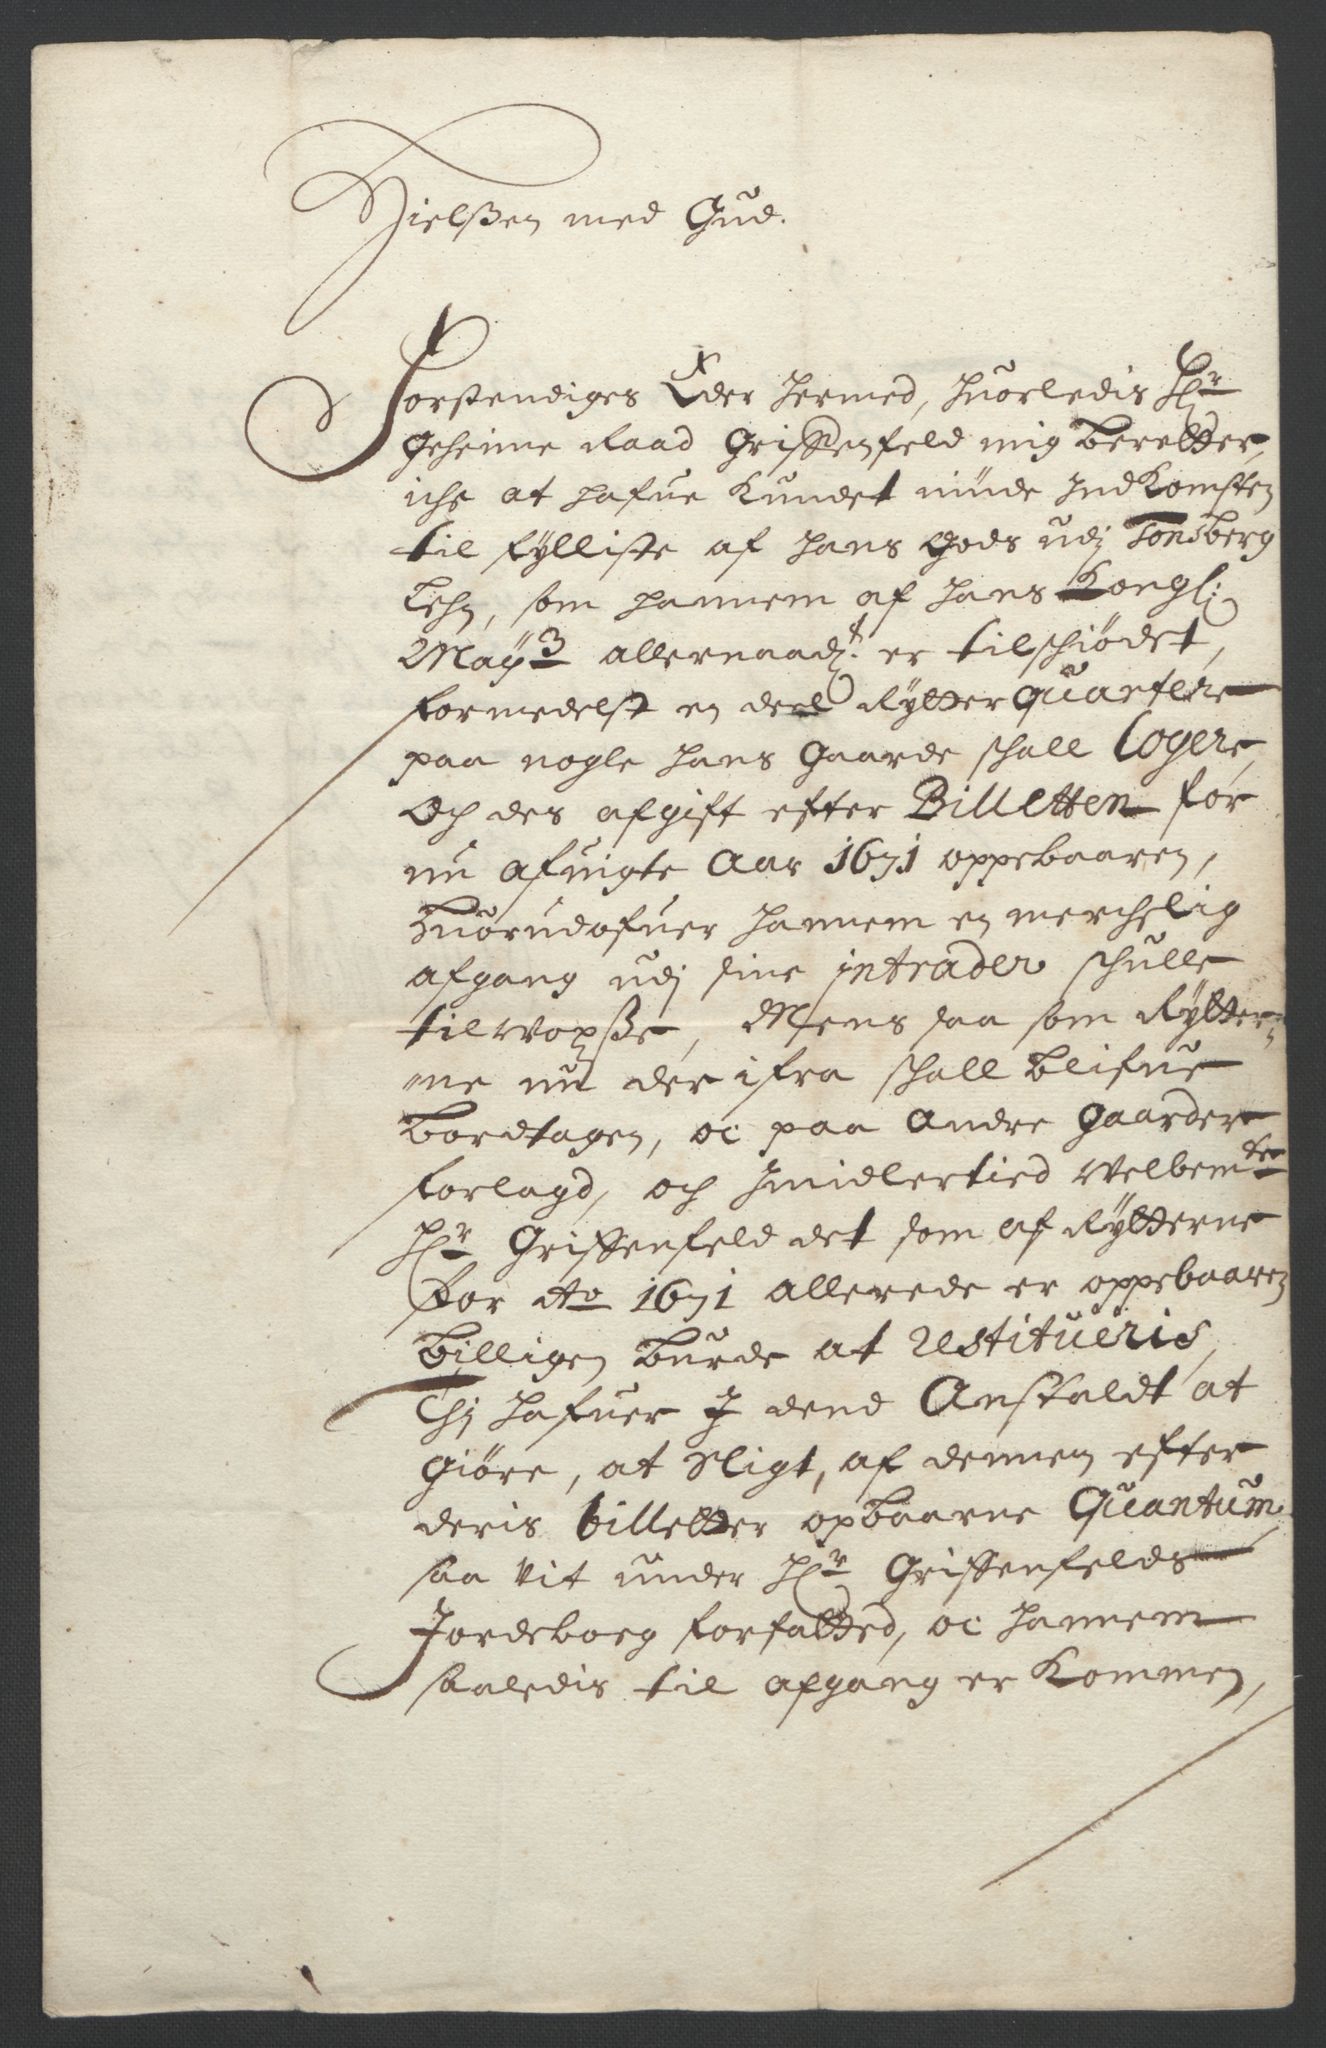 Hielsßen med Gud.
Forstendiges Eder hermed, huorledis Hr
Geheime Raad Griffenfeld mig beretter,
iche at hafue Kundet niüde IndKomsten
til fylliste af hans Gods udj Tonsberg
Lehn, som hannem af hans Kongl:
Mayts allernaadt. er tilschiødet,
formedelst en deel Rytter quartere
paa nogle hans Gaarde schall logere,
Och des afgift efter Billetten for
nu afuigte Aar 1671 oppebaaren,
Huorudofuer hannem en merchelig
afgang udj sine intrader schulle
tilvoxße, Mens saa som Rytter-
ne nu der ifra schall blifue
bordtagen, oc paa andre Gaarder
forlagd, och Imidlertied Velbemte
Hr Griffenfeld det som af Rytterne
for Ao 1671 allerede er oppebaaren
billigen burde at restitueris,
Thj hafuer I dend Anstaldt at
giøre, at sligt, af dennem efter
deris billetter opbaarne Quantum
saa vit under Hr Griffenfelds
Jordeboeg forfatted, oc hannem
saaledis til afgang er Kommen,